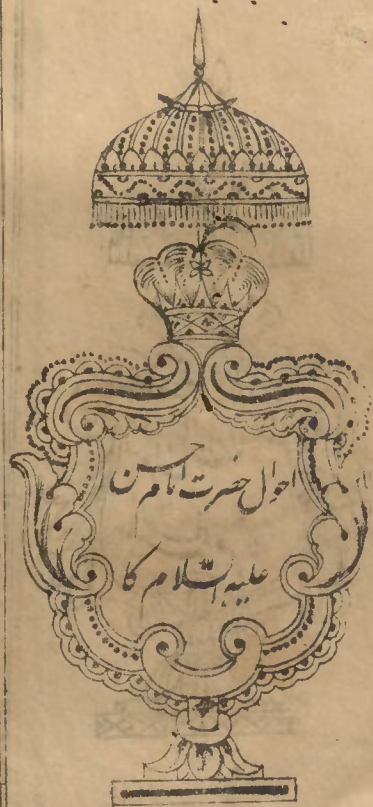 احوال حضرت امام حسن
علیہ السلام کا